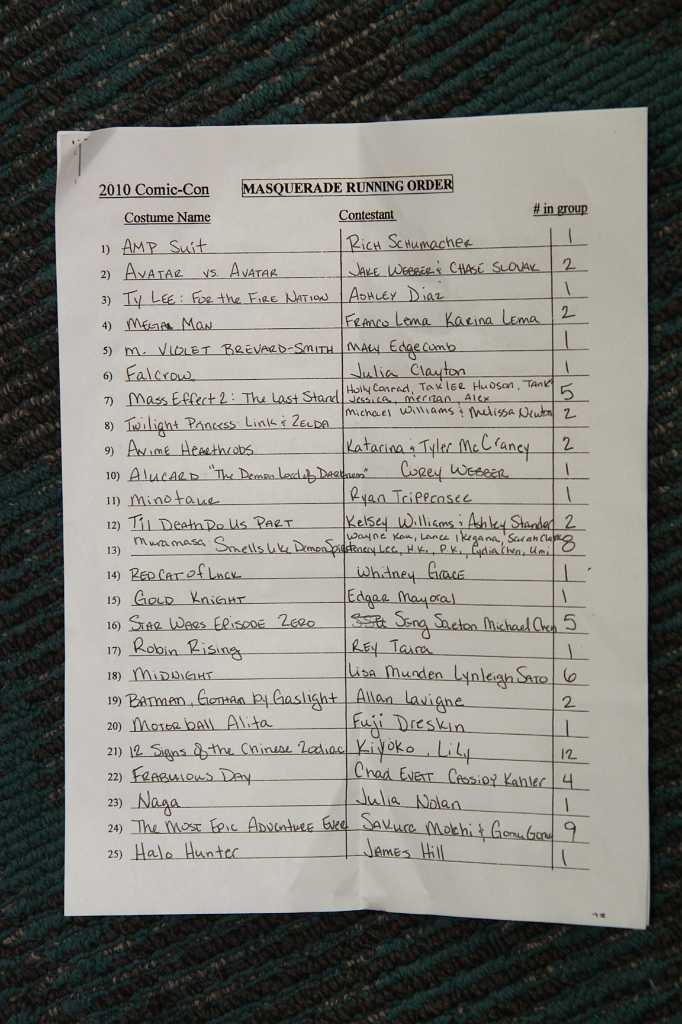 2010 Comic-Con MASQUERADE RUNNING ORDER
Costume Name Contestant # in group
1) AMP Suit Rich Schumacher 1
2) AVATAR vs. AVATAR JAKE WEBBER & CHASE SLOVAK 2
3) Ty Lee: For the Fire Nation Ashley Diaz 1
4) MEGA MAN Franco Lema Karina Lema 2
5) M. VIOLET BREVARD-SMITH MARY Edgecomb 1
6) Falcrow Julia Clayton 1
7) Mass Effect 2: The Last Stand Holly Conrad, Hudson, Tank 5
Jessica, Alex
8) Twilight Princess Link & ZELDA Michael Williams & Melissa Newton 2
9) Anime Hearthrobs Katarina & Tyler McCraney 2
10) Alucard "The Demon Lord of Darkness" Corey WEBBER 1
11) Minotaur Ryan Trippensee 1
12) Til Death Do Us Part Kelsey Williams & Ashley Stander 2
13) Muramasa Smells Like Demon Spirit Wayne Kaa, Lance Ikegana, Sarah 8
Lee, H.K., P.K., Lydia Chen, Umi
14) RED CAT of Luck Whitney Grace 1
15) Gold Knight Edgar Mayoral 1
16) STAR WARS EPISODE ZERO Seng Saeton Michael Chen 5
17) Robin Rising REY Taira 1
18) MIDNIGHT Lisa Munden Lynleigh SATO 6
19) BATMAN, Gotham by Gaslight Allan Lavigne 2
20) Motorball Alita Fuji Dreskin 1
21) 12 Signs of the Chinese Zodiac Kiyoko, Lily 12
22) FRABULOUS DAY Chad EVETT CASSIDY Kahler 4
23) Naga Julia Nolan 1
24) The Most Epic Adventure Ever Sakura Mokhi & Gomu Gomu 9
25) Halo Hunter JAMES Hill 1